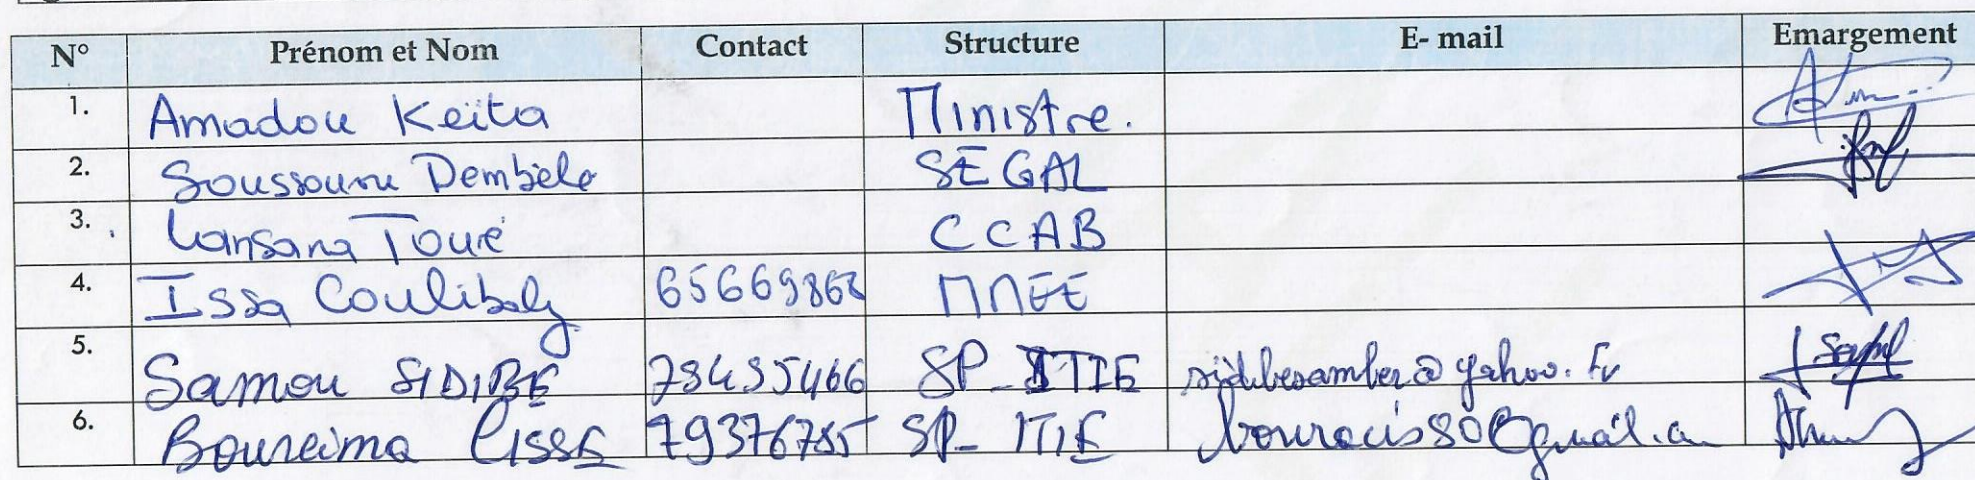 N° Prénom et Nom Contact Structure E- mail Emargement
1. Amadou Keïta Ministre.
2. Soussourou Dembélé SEGAL
3. Lansana Touré CCAB
4. Issa Coulibaly 65669868 MMEE
5. Samou SIDIBE 78435466 SP_ITIE
6. Boureima CISSE 79376785 SP_ ITIE